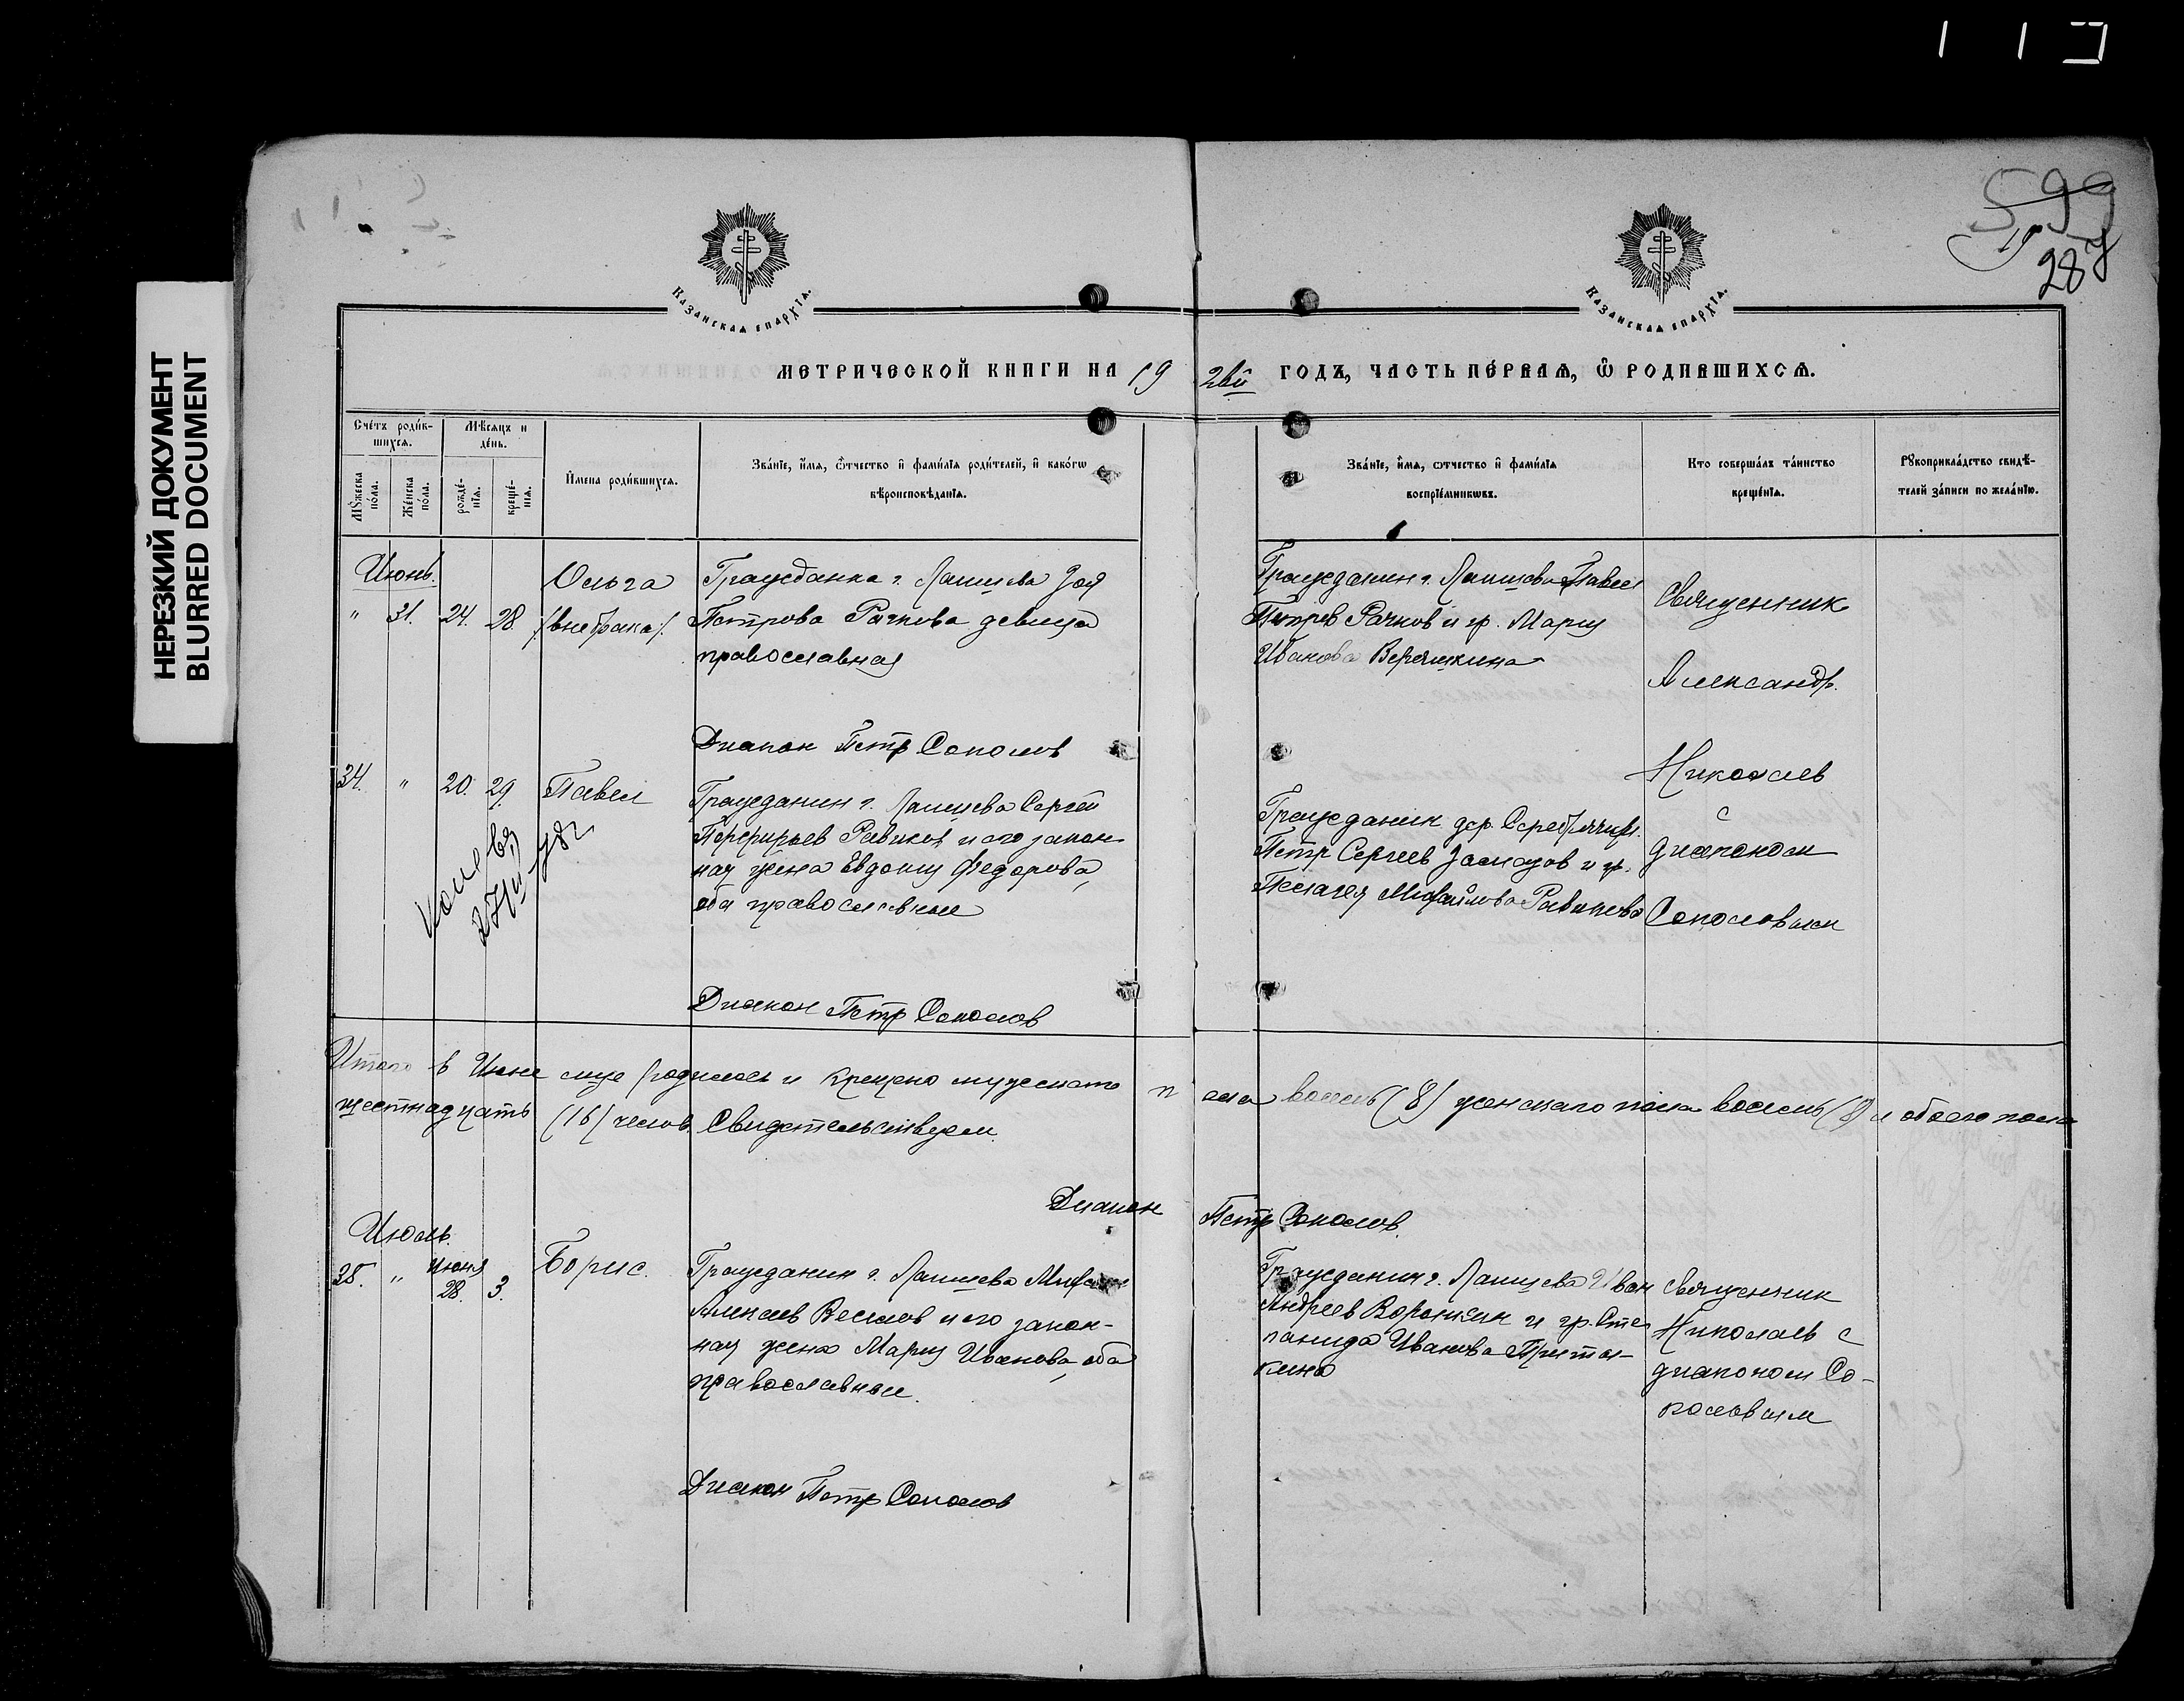 НЕРЕЗКИЙ ДОКУМЕНТ
BLURRED DOCUMENT
599
287
КАЗАНСКАЯ ЕПАРХІА.
КАЗАНСКАЯ ЕПАРХІА.
МЕТРИЧЕСКОЙ КНИГИ НА 19 2 ГОДЪ, ЧАСТЬ ПЕ́РВАѦ, Ѽ РОДИВШИХСѦ.
Сче́тъ роди́в-
шихсѧ.
Мѣ́сѧцъ и
де́нь.
Мꙋ́жеска
по́ла.
Же́нска
по́ла.
рожде́-
нїѧ.
креще́-
нїѧ.
И҆́мена роди́вшихсѧ.
Зва́нїе, и҆́мѧ, ѻ҆́тчество и҆ фами́лїѧ роди́телей, и҆ како́гѡ
вѣроисповѣ́данїѧ.
Зва́нїе, и҆́мѧ, ѻтчество и҆ фами́лїѧ
воспрїе́мникѡвъ.
Кто соверша́лъ та́инство
креще́нїѧ.
Рꙋкоприкла́дство свидѣ́-
телей за́писи по жела́нїю.
Июнь.
" 31. 24. 28.
Ольга
/вне брака/.
Гражданка г. Лаишева Зоя
Петрова Рачкова девица
православная
Диакон Петр Соколов
Гражданин г. Лаишева Павел
Петров Рачков и гр. Мария
Иванова Веряшкина
Священник
Александр
Николаев
с
диаконом
Соколовым
34. " 20. 29.
Павел
Гражданин г. Лаишева Сергей
Порфирьев Рябиков и его закон-
ная жена Евдокия Федорова,
оба православные
Диакон Петр Соколов
Гражданин дер.
Петр Сергеев и гр.
Пелагея Михайлова Рябикова
Итого в Июне м-це родилось и крещено мужескаго пола восемь (8) женскаго пола восемь (8) и обоего пола
шестнадцать (16) челов. Свидетельствуем
Диакон Петр Соколов.
Июль.
35. " июня 28. 3.
Борис.
Гражданин г. Лаишева Михаил
Веселов и его закон-
ная жена Мария Иванова, оба
православные.
Диакон Петр Соколов
Гражданин г. Лаишева Иван
Андреев Воронкин и гр. Сте-
панида Иванова
кина
Священник
Николаев с
диаконом Со-
коловым